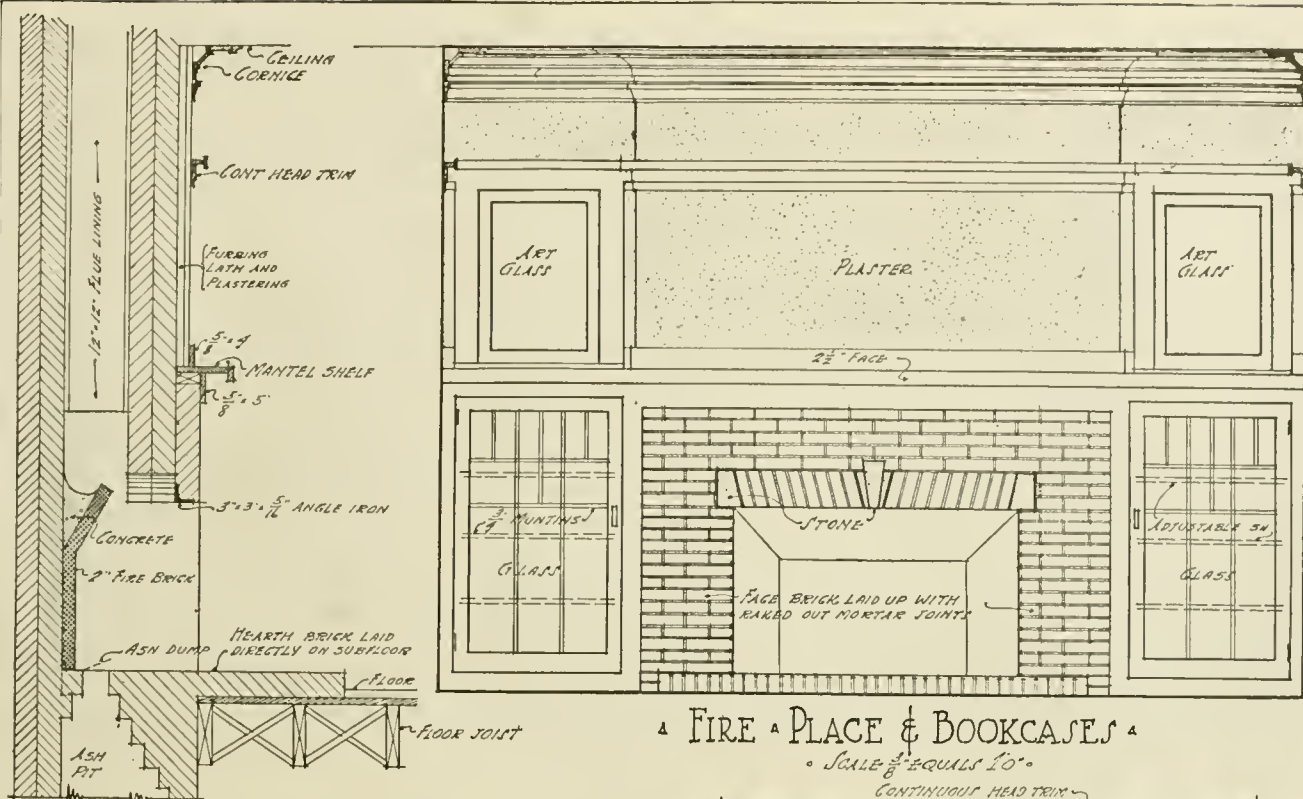 CEILING
CORNICE
CONT HEAD TRIM
12" x 12" FLUE LINING
FURRING
LATH AND
PLASTERING
5/8 x 4
MANTEL SHELF
5/8 x 5"
3" x 3" x 5/16" ANGLE IRON
CONCRETE
2" FIRE BRICK
ASH DUMP
HEARTH BRICK LAID
DIRECTLY ON SUBFLOOR
FLOOR
FLOOR JOIST
ASH
PIT
ART
GLASS
PLASTER
ART
GLASS
2 1/2" FACE
3/4" MUNTINS
GLASS
STONE
FACE BRICK LAID UP WITH
RAKED OUT MORTAR JOINTS
ADJUSTABLE SH
GLASS
FIRE PLACE & BOOKCASES
SCALE 3/8" EQUALS 1'0"
CONTINUOUS HEAD TRIM